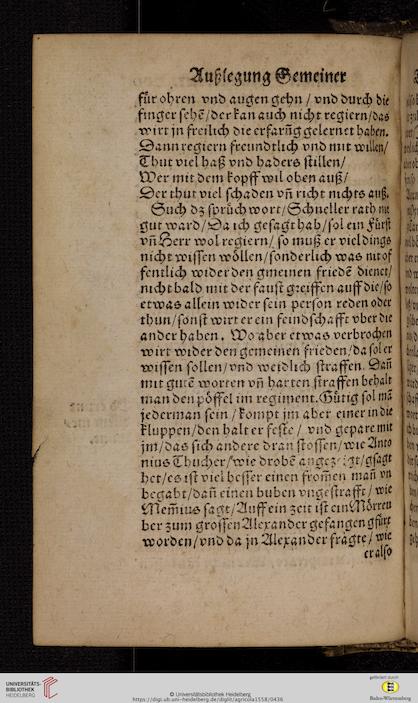 Außlegung Gemeiner
für ohren vnd augen gehn / vnd durch die
finger sehē / der kan auch nicht regiern / das
wirt jn freilich die erfarūg gelernet haben.
Dann regiern freundtlich vnd mit willen /
Thut viel haß vnd haders stillen /
Wer mit dem kopff wil oben auß /
Der thut viel schaden vn̄ richt nichts auß.
Such dz sprüchwort / Schneller rath nie
gut ward / Da ich gesagt hab / sol ein Fürst
vn̄ Herr wol regiern / so muß er viel dings
nicht wissen wöllen / sonderlich was nit of
fentlich wider den gmeinen friedē dienet /
nicht bald mit der faust greiffen auff die / so
etwas allein wider sein person reden oder
thun / sonst wirt er ein feindschafft vber die
ander haben. Wo aber etwas verbrochen
wirt wider den gemeinen frieden / da sol er
wissen sollen / vnd weidlich straffen. Dan̄
mit gutē worten vn̄ harten straffen behalt
man den pöffel im regiment. Gütig sol mā
jederman sein / kompt jm aber einer in die
kluppen / den halt er feste / vnd gepare mit
jm / das sich andere dran stossen / wie Anto
nius Thucher / wie drobē gsagt
het / es ist viel besser einen from̄en man̄ vn
begabt / dan̄ einen buben vngestrafft / wie
Mem̄ius sagt / Auff ein zeit ist ein Mörreu
ber zum grossen Alexander gefangen gfürt
worden / vnd da jn Alexander fragte / wie
er also
UNIVERSITÄTS-
BIBLIOTHEK
HEIDELBERG
© Universitätsbibliothek Heidelberg
https://digi.ub.uni-heidelberg.de/diglit/agricola1558/0436
gefördert durch
Baden-Württemberg